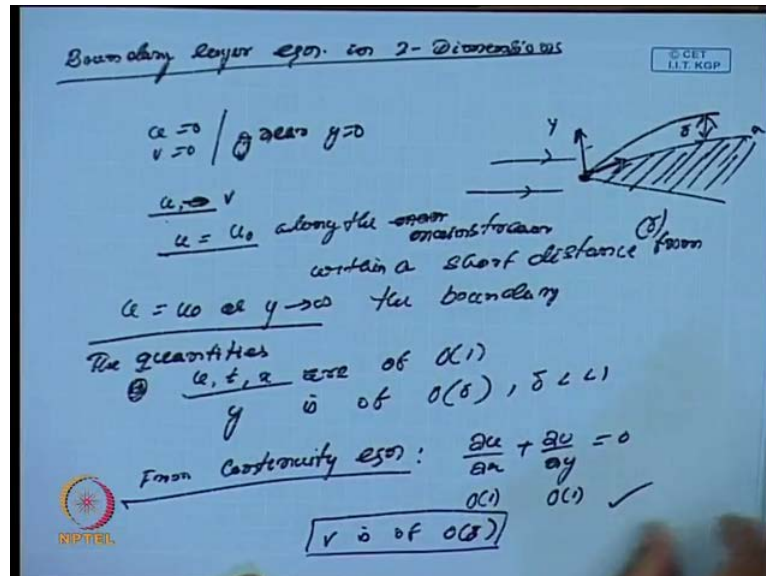 Boundary layer eqn. in 2-Dimensions
© CET
I.I.T. KGP
u = 0
v = 0 / near y=0
y
δ
x
u, v
u = u₀ along the mainstream
within a short distance (δ) from
the boundary
u = u₀ as y → ∞
The quantities
u, t, x are of O(1)
y is of O(δ), δ << 1
From Continuity eqn: ∂u/∂x + ∂v/∂y = 0
O(1) O(1) ✓
v is of O(δ)
NPTEL